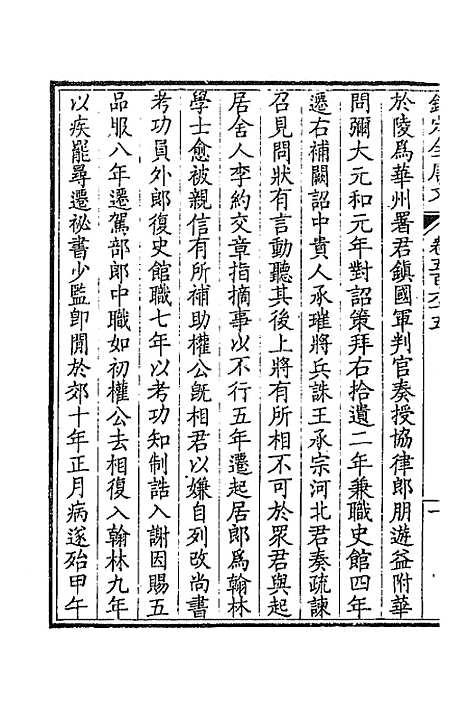 欽定全唐文 卷五百六五
於陵為華州署君鎮國軍判官奏授協律郎朋遊益附華
問彌大元和元年對詔策拜右拾遺二年兼職史館四年
遷右補闕詔中貴人承璀將兵誅王承宗河北君奏疏諫
召見問狀有言動聽其後上將有所相不可於眾君與起
居舍人李約交章指摘事以不行五年遷起居郎為翰林
學士愈被親信有所補助權公既相君以嫌自列改尚書
考功員外郎復史館職七年以考功知制誥入謝因賜五
品服八年遷駕部郎中職如初權公去相復入翰林九年
以疾罷尋遷祕書少監卽閒於郊十年正月病遂殆甲午